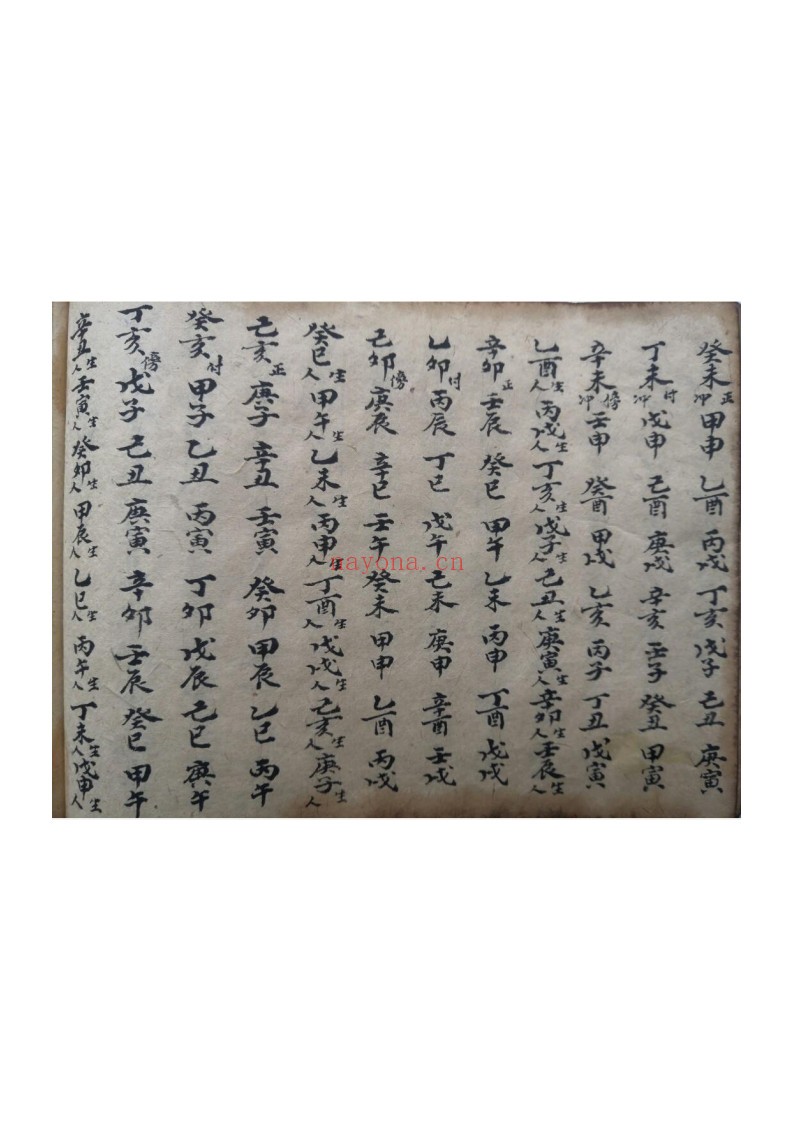 癸未正冲 甲申 乙酉 丙戌 丁亥 戊子 己丑 庚寅
丁未付冲 戊申 己酉 庚戌 辛亥 壬子 癸丑 甲寅
辛未傍冲 壬申 癸酉 甲戌 乙亥 丙子 丁丑 戊寅
乙酉生人 丙戌生人 丁亥生人 戊子生人 己丑生人 庚寅生人 辛卯生人 壬辰生人
辛卯正 壬辰 癸巳 甲午 乙未 丙申 丁酉 戊戌
乙卯付 丙辰 丁巳 戊午 己未 庚申 辛酉 壬戌
己卯傍 庚辰 辛巳 壬午 癸未 甲申 乙酉 丙戌
癸巳生人 甲午生人 乙未生人 丙申生人 丁酉生人 戊戌生人 己亥生人 庚子生人
己亥正 庚子 辛丑 壬寅 癸卯 甲辰 乙巳 丙午
癸亥付 甲子 乙丑 丙寅 丁卯 戊辰 己巳 庚午
丁亥傍 戊子 己丑 庚寅 辛卯 壬辰 癸巳 甲午
辛丑生人 壬寅生人 癸卯生人 甲辰生人 乙巳生人 丙午生人 丁未生人 戊申生人
nayona.cn